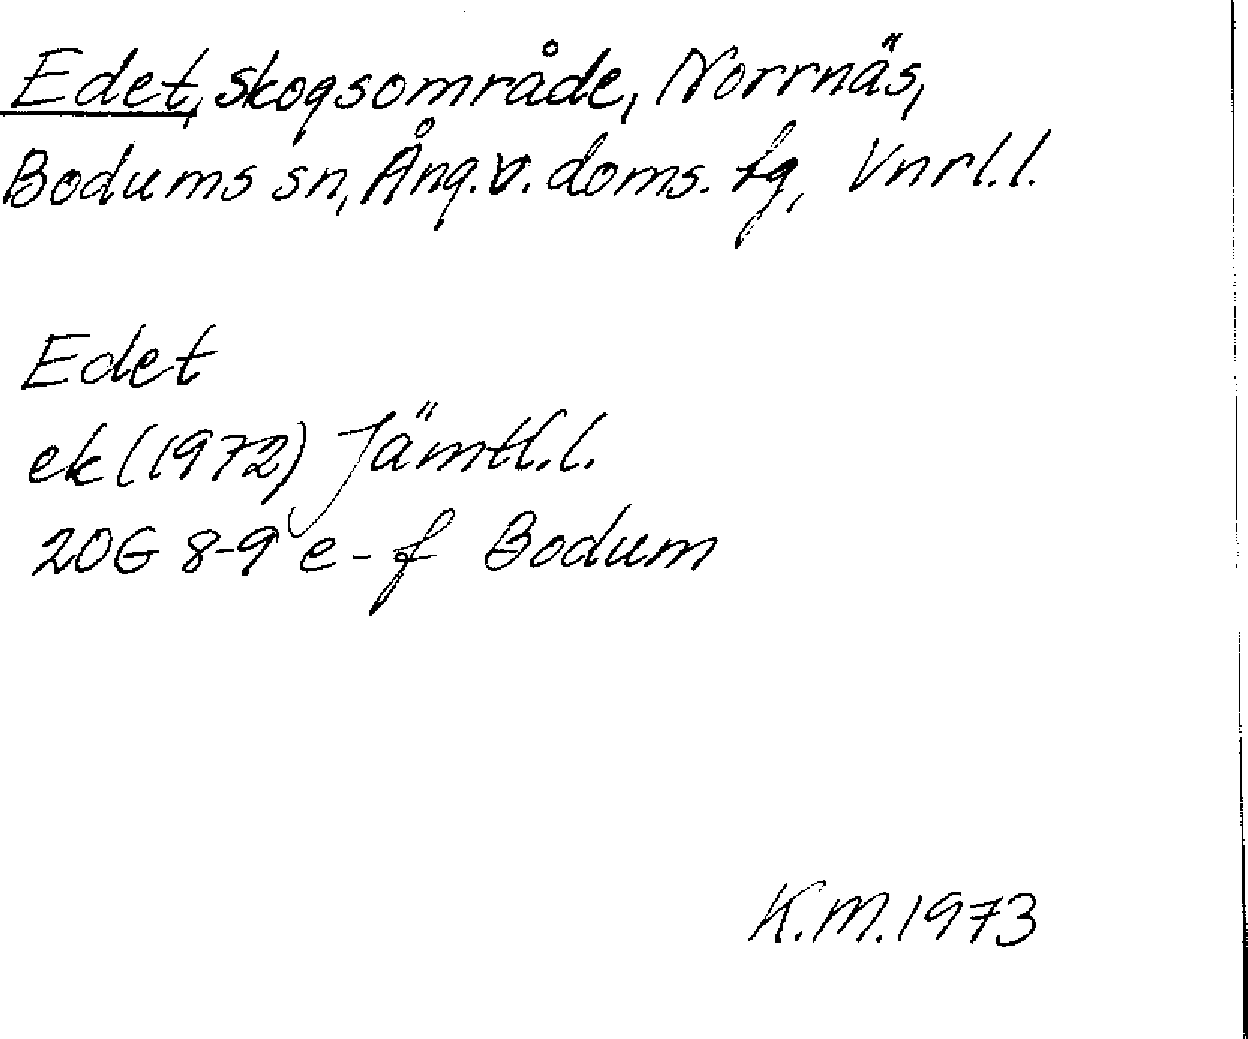 Edet, skogsområde, Norrnäs,
Bodums sn, Ång.v. doms. fg, Vnrl.l.
Edet
ek (1972) Jämtl.l.
20G 8-9 e-f Bodum
K.M. 1973